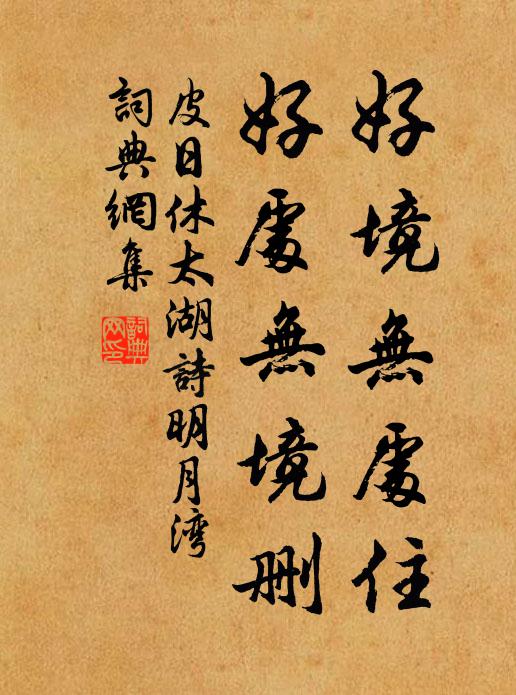 好境無處住
好處無境删
皮日休太湖詩明月湾
詞典網集
詞典
网印